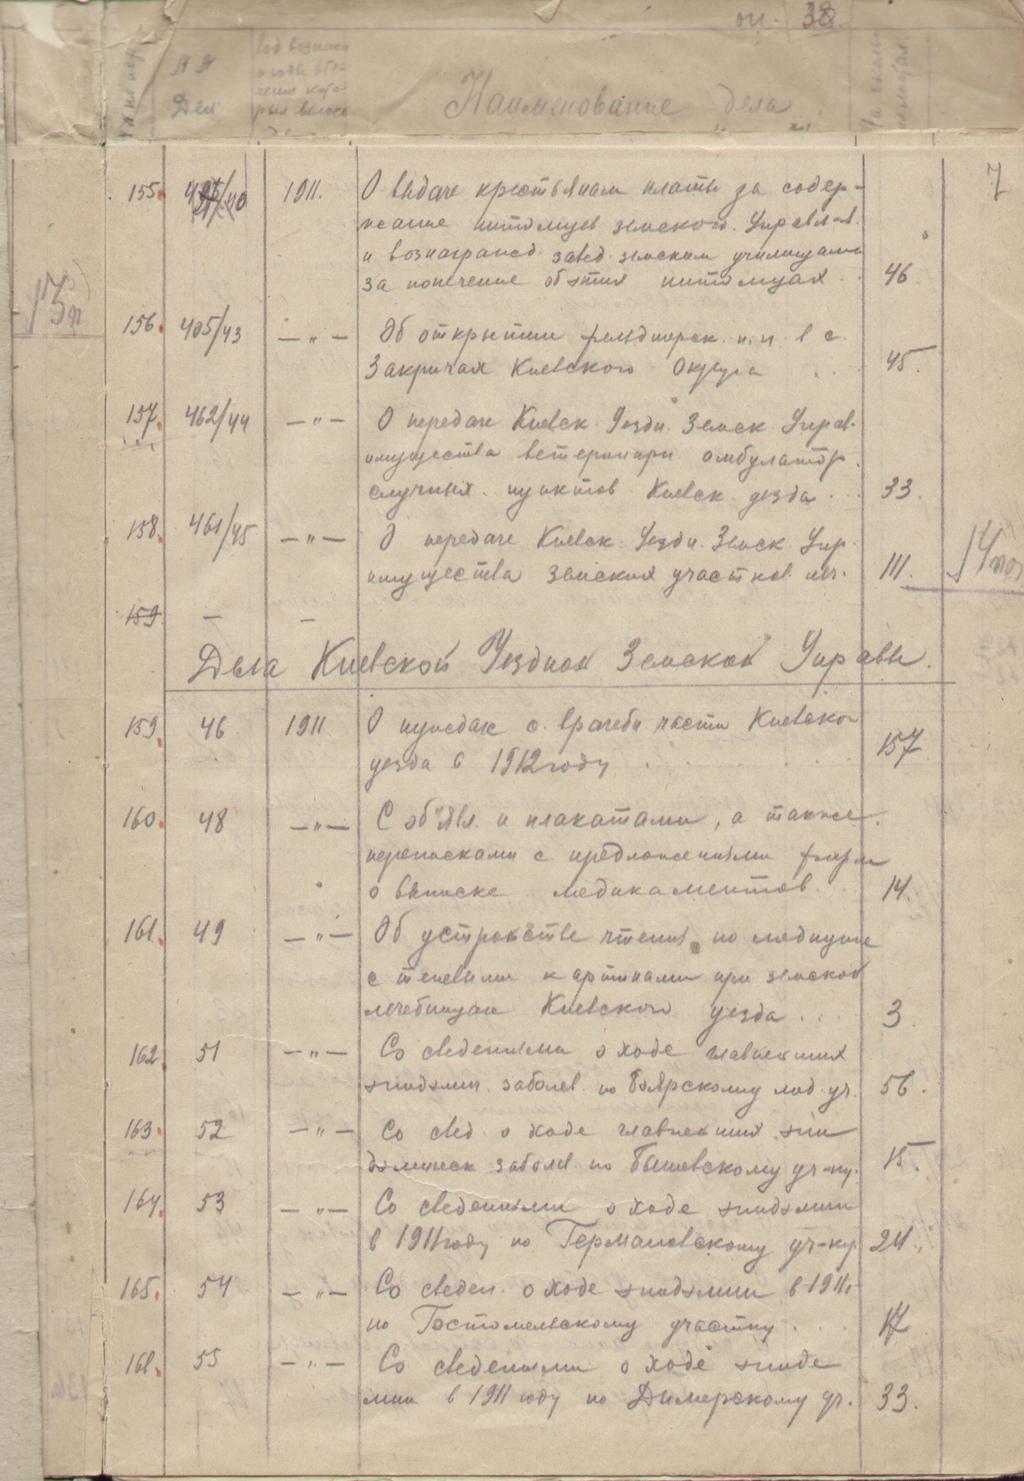 оп. 38
№ №
Дел
Наименование дела
7
155. 1911. О выдаче крестьянам платы за содер-
жание питомцев земской. Управл-в.
и вознагражд. завед. земским училищами
за попечение об этих питомцах . . 46
13п
156. 405/43 — " — Об открытии фельдшерск. п. п. в с.
Закричах Киевского Округа . . . 45.
157. 462/44 — " — О передаче Киевск. Уездн. Земск. Управ.
имущества ветеринарн амбулатор.
случных. пунктов Киевск. уезда . . . 33.
158. 461/45 — " — О передаче Киевск. Уездн. Земск. Упр.
имущества земских участков. леч. 111.
14
159 — –
Дела Киевской Уездной Земской Управы.
159. 46 1911 О нуждах о врачебн части Киевског
уезда в 1912 году . . . 157
160. 48 — " — С объявл. и плакатами, а также.
переписками с предложениями фирм
о выписке медикаментов. . . 14.
161. 49 — " — Об устройстве чтений по медицине
с теневыми картинами при земской
лечебницах Киевского уезда . . . 3
162 51 — " — Со сведениями о ходе главнейших
эпидэмич. заболев. по Боярскому мед. уч. 56.
163. 52 — " — Со свед. о ходе главнейших эпи
дэмическ заболев. по Бышевскому уч-ку. 15.
164. 53 — " — Со сведениями о ходе эпидэмии
в 1911 году по Германовскому уч-ку 24.
165. 54 — " — Со сведен. о ходе эпидэмии в 1911г
по Гостомельскому участку . . . 17
166. 55 — " — Со сведениями о ходе эпиде
мии в 1911 году по Дымерскому уч. 33.